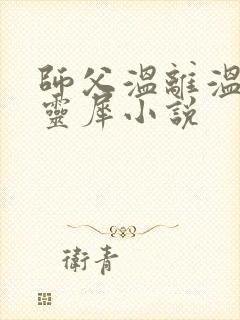 師父溫離溫
靈犀小說
衛青